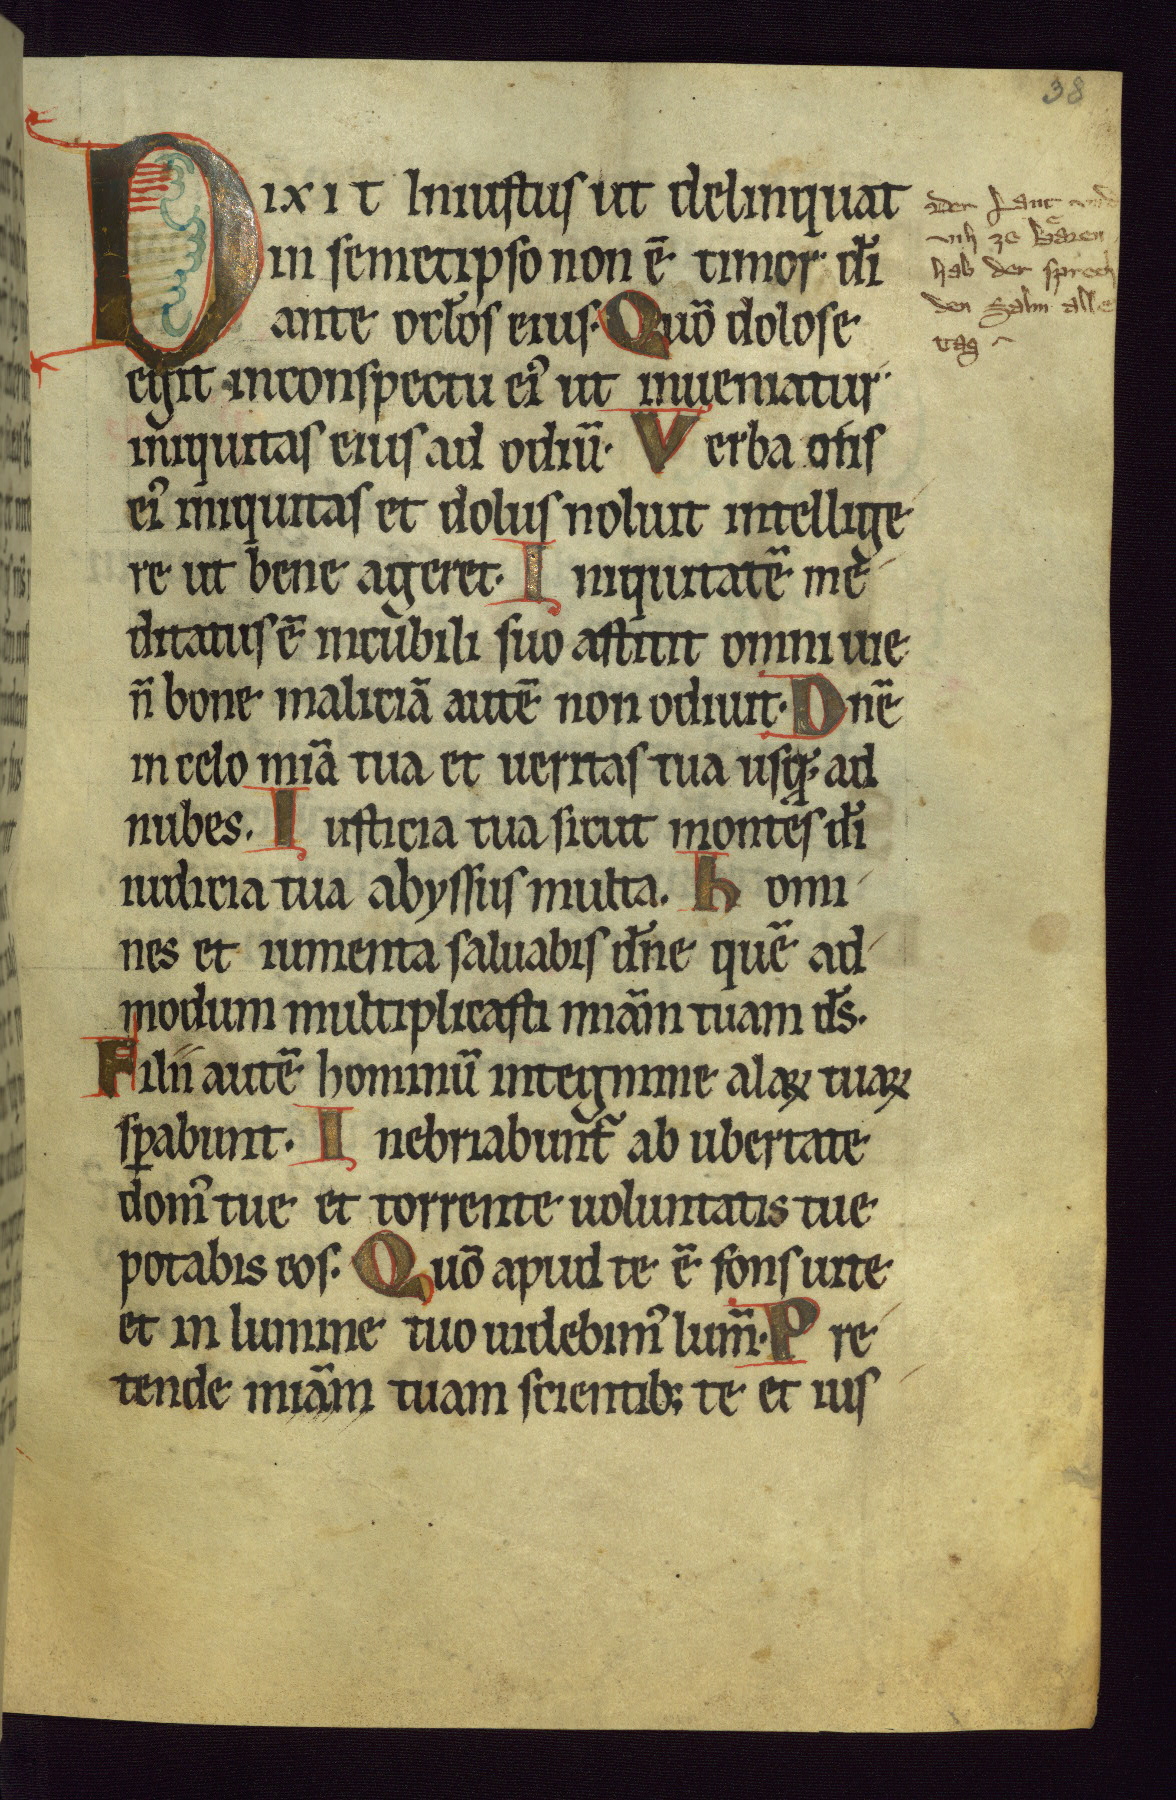 38
DIXIT Iniustus ut delinquat
in semetipso non ē timor dn̄i
ante ocl̄os eius. Quō dolose
egit inconspectu ei᷒ ut inueniatur
iniquitas eius ad odiū. Verba oris
ei᷒ iniquitas et dolus noluit intellige
re ut bene ageret. Iniquitatē me
ditatus ē incubili suo astitit omni uie
n̄ bone maliciā autē non odiuit. Dn̄e
in celo mīa tua et ueritas tua usq; ad
nubes. Iusticia tua sicut montes dī
iudicia tua abyssus multa. homi
nes et iumenta saluabis dn̄e quē ad
modum multiplicasti mīam tuam ds̄.
Filii autē hominū integmine alaꝝ tuaꝝ
sꝑabunt. Inebriabunt᷑ ab ubertate
dom᷒ tue et torrente uoluntatis tue
potabis eos. Quō apud te ē fons uite
et in lumine tuo uidebim᷒ lum̄. Pre
tende mīam tuam scientib; te et ius
der
ze
hab der sprech
den salm alle
tag